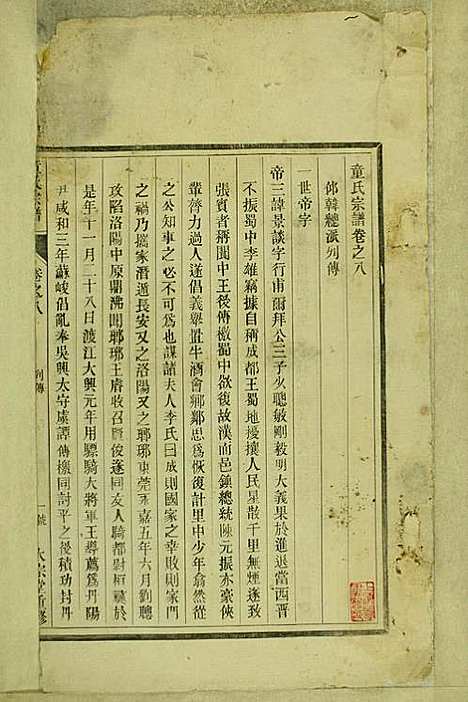 童氏宗譜卷之八
邵韓總派列傳
一世帝字
帝三諱景談字行甫爾拜公三子火聰敏剛毅明大義果於進退當西晉
不振蜀中李雄竊據自稱成都王蜀地擾攘人民星散千里無煙遂致
張賓者稱閬中王後傳檄蜀中欲復故漢而邑鍾總統陳元振亦豪俠
輩膂力過人遂倡義舉置牛酒會鄉鄰思爲恢復計里中少年翕然從
之公知事之必不可爲也謀諸夫人李氏曰成則國家之幸敗則家門
之禍乃攜家潛遁長安又之洛陽又之瑯琊東莞永嘉五年六月劉聰
攻陷洛陽中原鼎沸聞瑯琊王睿收召賢俊遂同友人騎都尉桓彝於
是年十一月二十八日渡江大興元年用驃騎大將軍王導薦爲丹陽
尹咸和三年蘇峻倡亂奉吳興太守虞譚傳檄同討平之後積功封丹
童氏宗譜
卷之八
列傳
一號